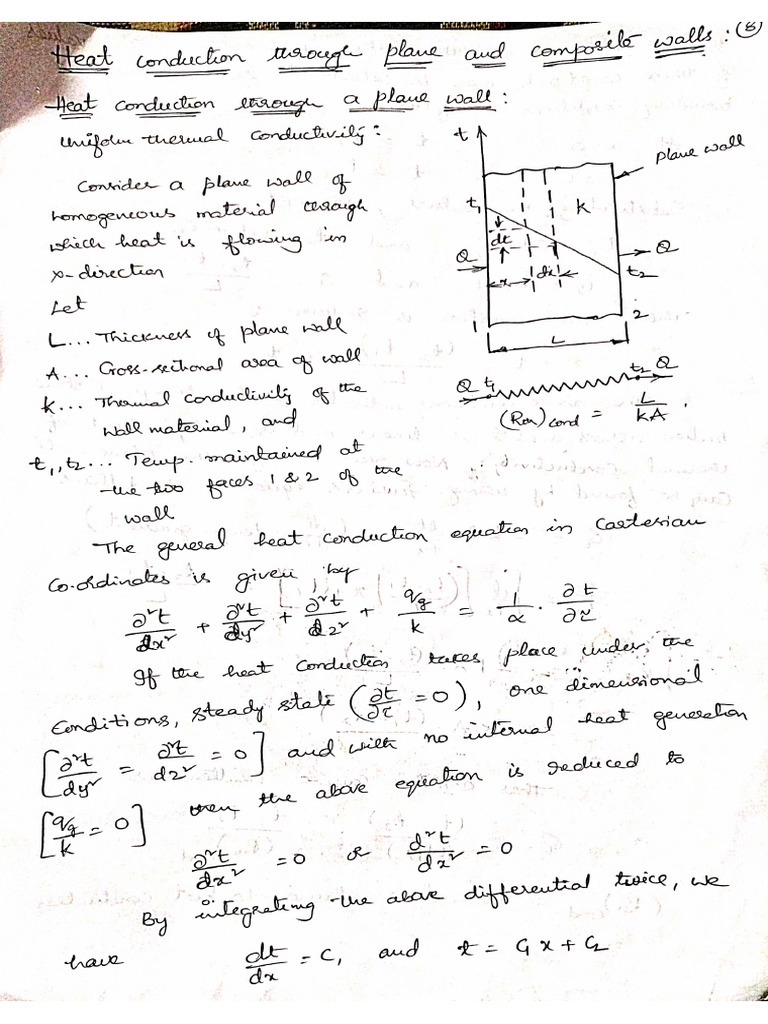 Heat conduction through plane and composite walls: (8)
Heat conduction through a plane wall:
Uniform thermal conductivity:
Consider a plane wall of
homogeneous material through
which heat is flowing in
x-direction
Let
L... Thickness of plane wall
A... Cross-sectional area of wall
k... Thermal conductivity of the
wall material, and
t₁, t₂... Temp. maintained at
the two faces 1 & 2 of the
wall
t
plane wall
t₁
K
dt
Q
Q
x
dx
t₂
1
2
L
Q t₁
t₂ Q
(Rth)cond = L/kA.
The general heat conduction equation in Cartesian
co-ordinates is given by
∂²t/∂x² + ∂²t/∂y² + ∂²t/∂z² + qg/k = 1/α · ∂t/∂τ
If the heat conduction takes place under the
conditions, steady state (∂t/∂τ = 0), one dimensional
[∂²t/dy² = ∂²t/dz² = 0] and with no internal heat generation
[qg/k = 0] then, the above equation is reduced to
∂²t/dx² = 0 or d²t/dx² = 0
By integrating the above differential twice, we
have dt/dx = C₁ and t = C₁x + C₂